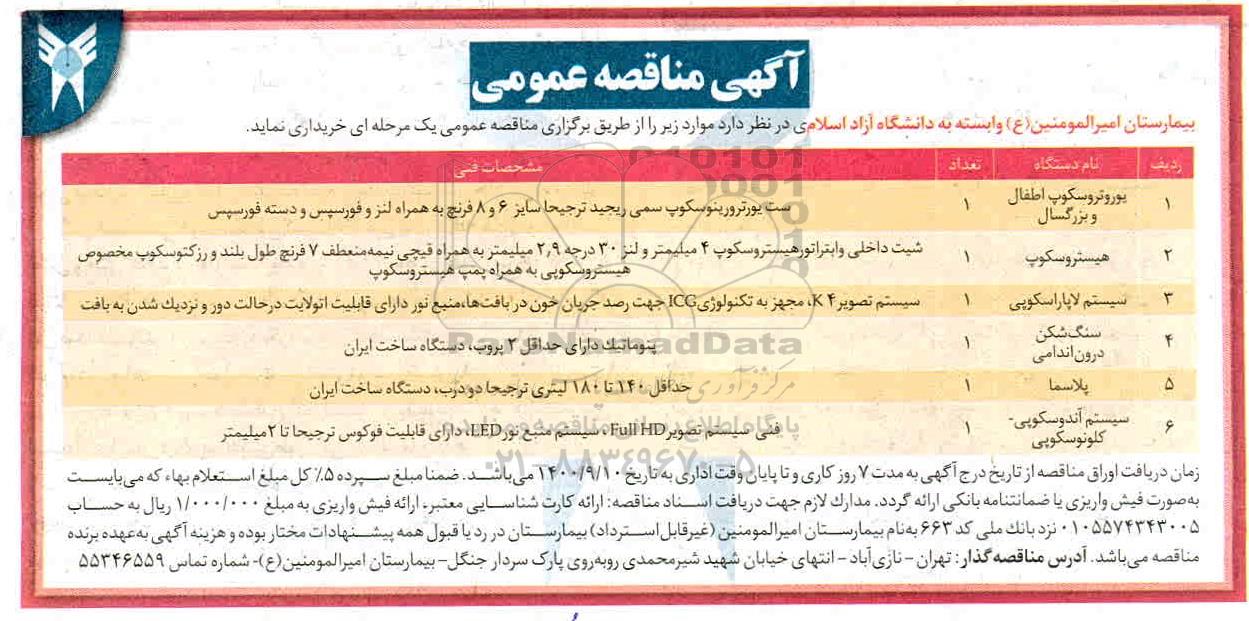 آگهی مناقصه عمومی
بیمارستان امیرالمومنین(ع) وابسته به دانشگاه آزاد اسلامی در نظر دارد موارد زیر را از طریق برگزاری مناقصه عمومی یک مرحله ای خریداری نماید.
ردیف نام دستگاه تعداد مشخصات فنی
۱ یوروتروسکوپ اطفال و بزرگسال ۱ ست یورترورینوسکوپ سمی ریجید ترجیحا سایز ۶ و ۸ فرنچ به همراه لنز و فورسپس و دسته فورسپس
۲ هیستروسکوپ ۱ شیت داخلی وابتراتورهیستروسکوپ ۴ میلیمتر و لنز ۳۰ درجه ۲٫۹ میلیمتر به همراه قیچی نیمه‌منعطف ۷ فرنچ طول بلند و رزکتوسکوپ مخصوص
هیستروسکوپی به همراه پمپ هیستروسکوپ
۳ سیستم لاپاراسکوپی ۱ سیستم تصویر ۴ K، مجهز به تکنولوژی ICG جهت رصد جریان خون در بافت‌ها،منبع نور دارای قابلیت اتولایت درحالت دور و نزدیك شدن به بافت
۴ سنگ‌شکن درون‌اندامی ۱ پنوماتیك دارای حداقل ۲ پروب، دستگاه ساخت ایران
۵ پلاسما ۱ حداقل ۱۴۰ تا ۱۸۰ لیتری ترجیحا دو درب، دستگاه ساخت ایران
۶ سیستم آندوسکوپی- کلونوسکوپی ۱ فنی سیستم تصویر Full HD، سیستم منبع نور LED، دارای قابلیت فوکوس ترجیحا تا ۲میلیمتر
زمان دریافت اوراق مناقصه از تاریخ درج آگهی به مدت ۷ روز کاری و تا پایان وقت اداری به تاریخ ۱۴۰۰/۹/۱۰ می‌باشد. ضمنا مبلغ سپرده ۵٪ کل مبلغ استعلام بهاء که می‌بایست
به‌صورت فیش واریزی یا ضمانتنامه بانکی ارائه گردد. مدارك لازم جهت دریافت اسناد مناقصه: ارائه کارت شناسایی معتبر، ارائه فیش واریزی به مبلغ ۱/۰۰۰/۰۰۰ ریال به حساب
۰۱۰۵۵۷۴۳۴۳۰۰۵ نزد بانك ملی کد ۶۶۳ به‌نام بیمارستان امیرالمومنین (غیرقابل استرداد) بیمارستان در رد یا قبول همه پیشنهادات مختار بوده و هزینه آگهی به‌عهده برنده
مناقصه می‌باشد. آدرس مناقصه‌گذار: تهران - نازی‌آباد - انتهای خیابان شهید شیرمحمدی روبه‌روی پارک سردار جنگل- بیمارستان امیرالمومنین(ع)- شماره تماس ۵۵۳۴۶۵۵۹
ParsNamadData
پایگاه اطلاع رسانی مناقصه و مزایده
۰۲۱-۸۸۳۴۹۶۷۰-۵